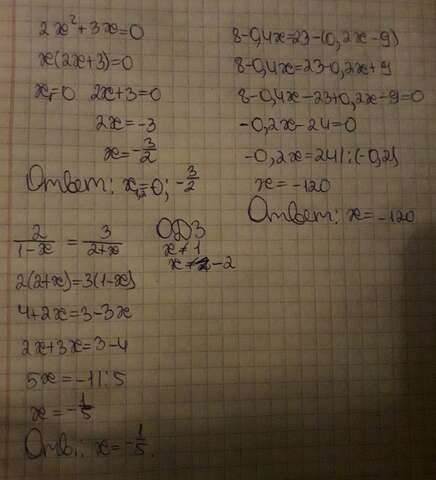 2x²+3x=0
x(2x+3)=0
x₁=0 2x+3=0
2x=-3
x=-3/2
Ответ: x₁,₂=0; -3/2
8-0,4x=23-(0,2x-9)
8-0,4x=23-0,2x+9
8-0,4x-23+0,2x-9=0
-0,2x-24=0
-0,2x=24|:(-0,2)
x=-120
Ответ: x=-120
2/(1-x) = 3/(2+x) ОДЗ
x≠1
x≠-2
2(2+x)=3(1-x)
4+2x=3-3x
2x+3x=3-4
5x=-1|:5
x=-1/5
Отв: x=-1/5.